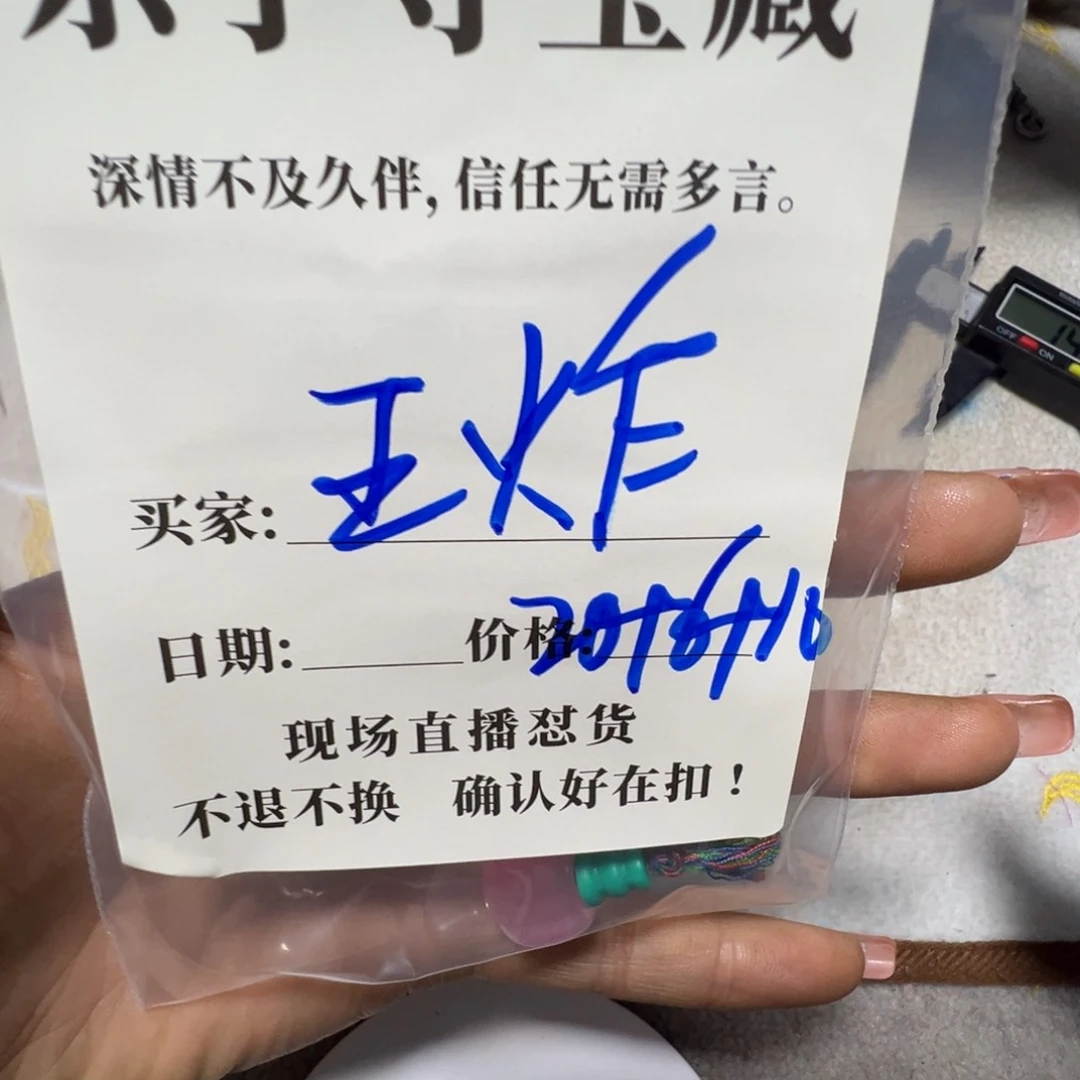 宝藏
深情不及久伴,信任无需多言。
买家: 王炸
日期: 价格:
现场直播怼货
不退不换 确认好在扣!
OFF ON